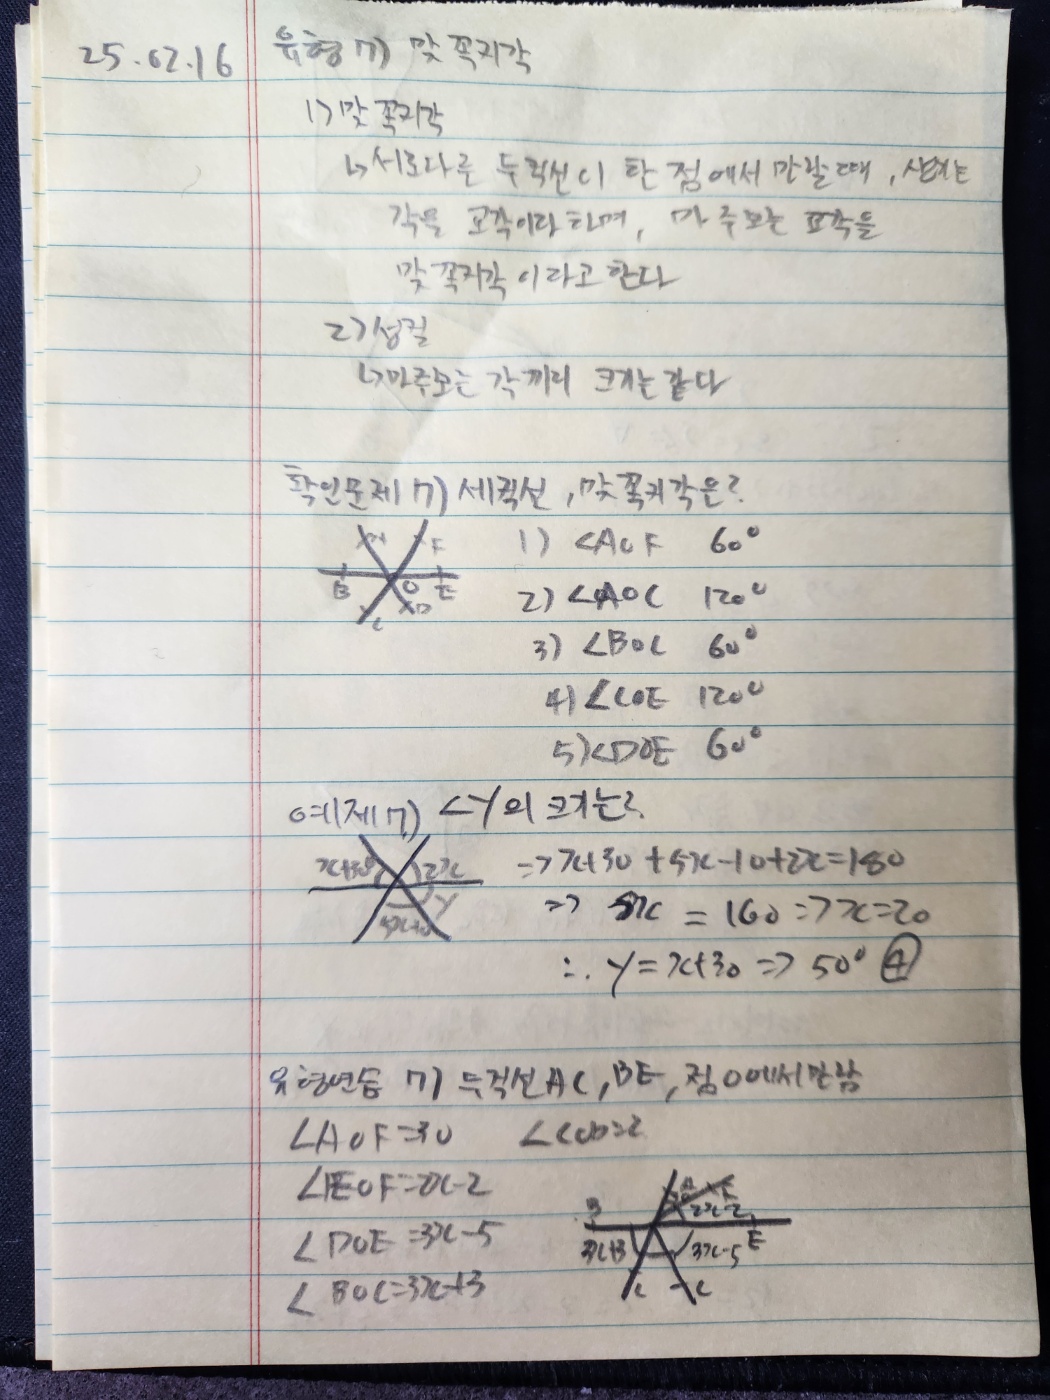 25.02.16
유형 7) 맞꼭지각
1) 맞꼭지각
↳ 서로다른 두직선이 한 점에서 만날때, 생기는
각을 교각이라 하며, 마주보는 교각을
맞꼭지각이라고 한다
2) 성질
↳ 마주보는 각끼리 크기는 같다
확인문제 7) 세직선, 맞꼭지각은?
A F
B O E
C D
1) ∠AOF 60°
2) ∠AOC 120°
3) ∠BOC 60°
4) ∠COE 120°
5) ∠DOE 60°
예제 7) ∠Y의 크기는?
x+30 2x
Y
=> x+30 + 5x-10+2x=180
=> 8x = 160 => x=20
∴ y = x+30 => 50° ④
유형연습 7) 두직선 AC, BE, 점O에서만남
∠AOF=30 ∠COD=?
∠EOF=2x-2
∠DOE=3x-5
∠BOC=3x+3
A F
B 30 2x-2
3x+3 3x-5 E
C C